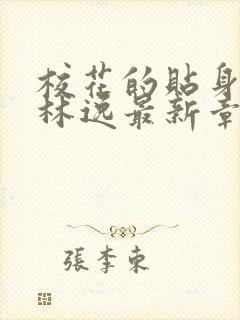 校花的貼身
林逸最新章
張李東